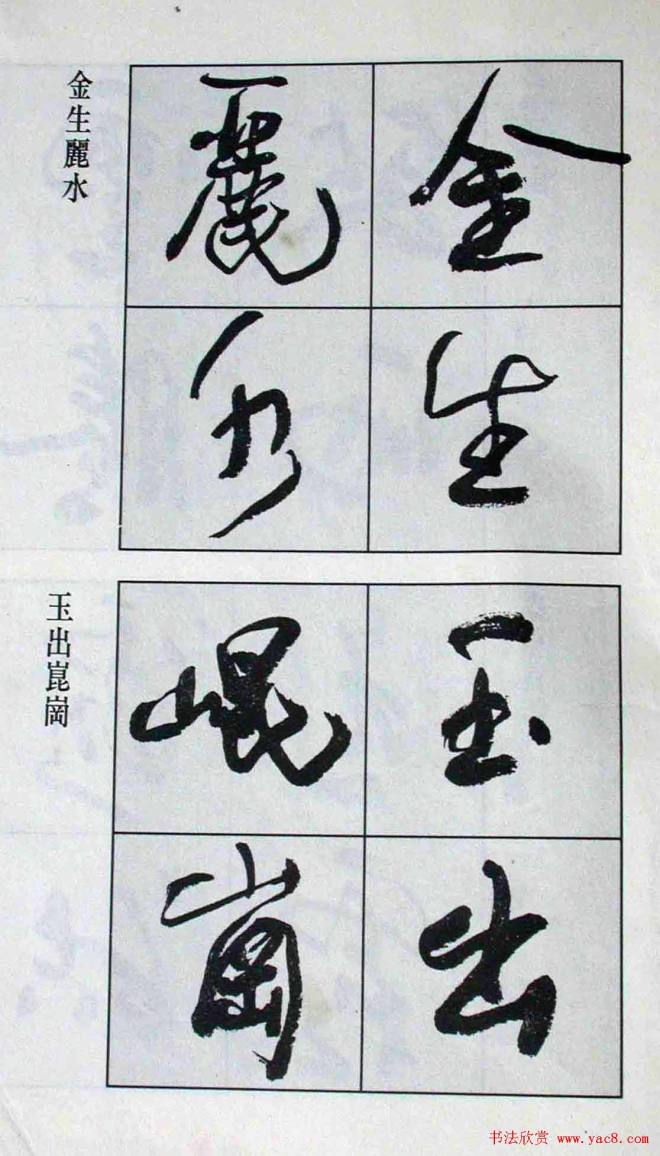 金生
麗水
金生麗水
玉出
崐崗
玉出崑崗
书法欣赏 www.yac8.com